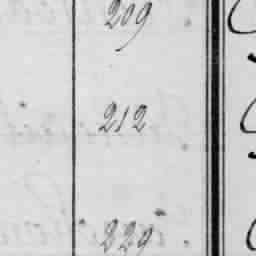 209
212
229